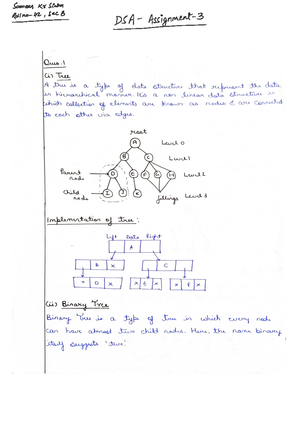 DSA - Assignment-3
Ques:1
(i) Tree
A tree is a type of data structure that represent the data
in hierarchical manner. It's a non linear data structure in
which collection of elements are known as nodes & are connected
to each other via edges.
root
A
Level 0
B
C
Level 1
Parent
node
D
E
F
G
H
Level 2
Child
node
I
J
K
Siblings
Level 3
Implementation of tree:
Left Data Right
A
B X
C
X D X
X E X
X F X
(ii) Binary Tree
Binary Tree is a type of tree in which every node
can have atmost two child nodes. Here, the name binary
itself suggests 'two'.